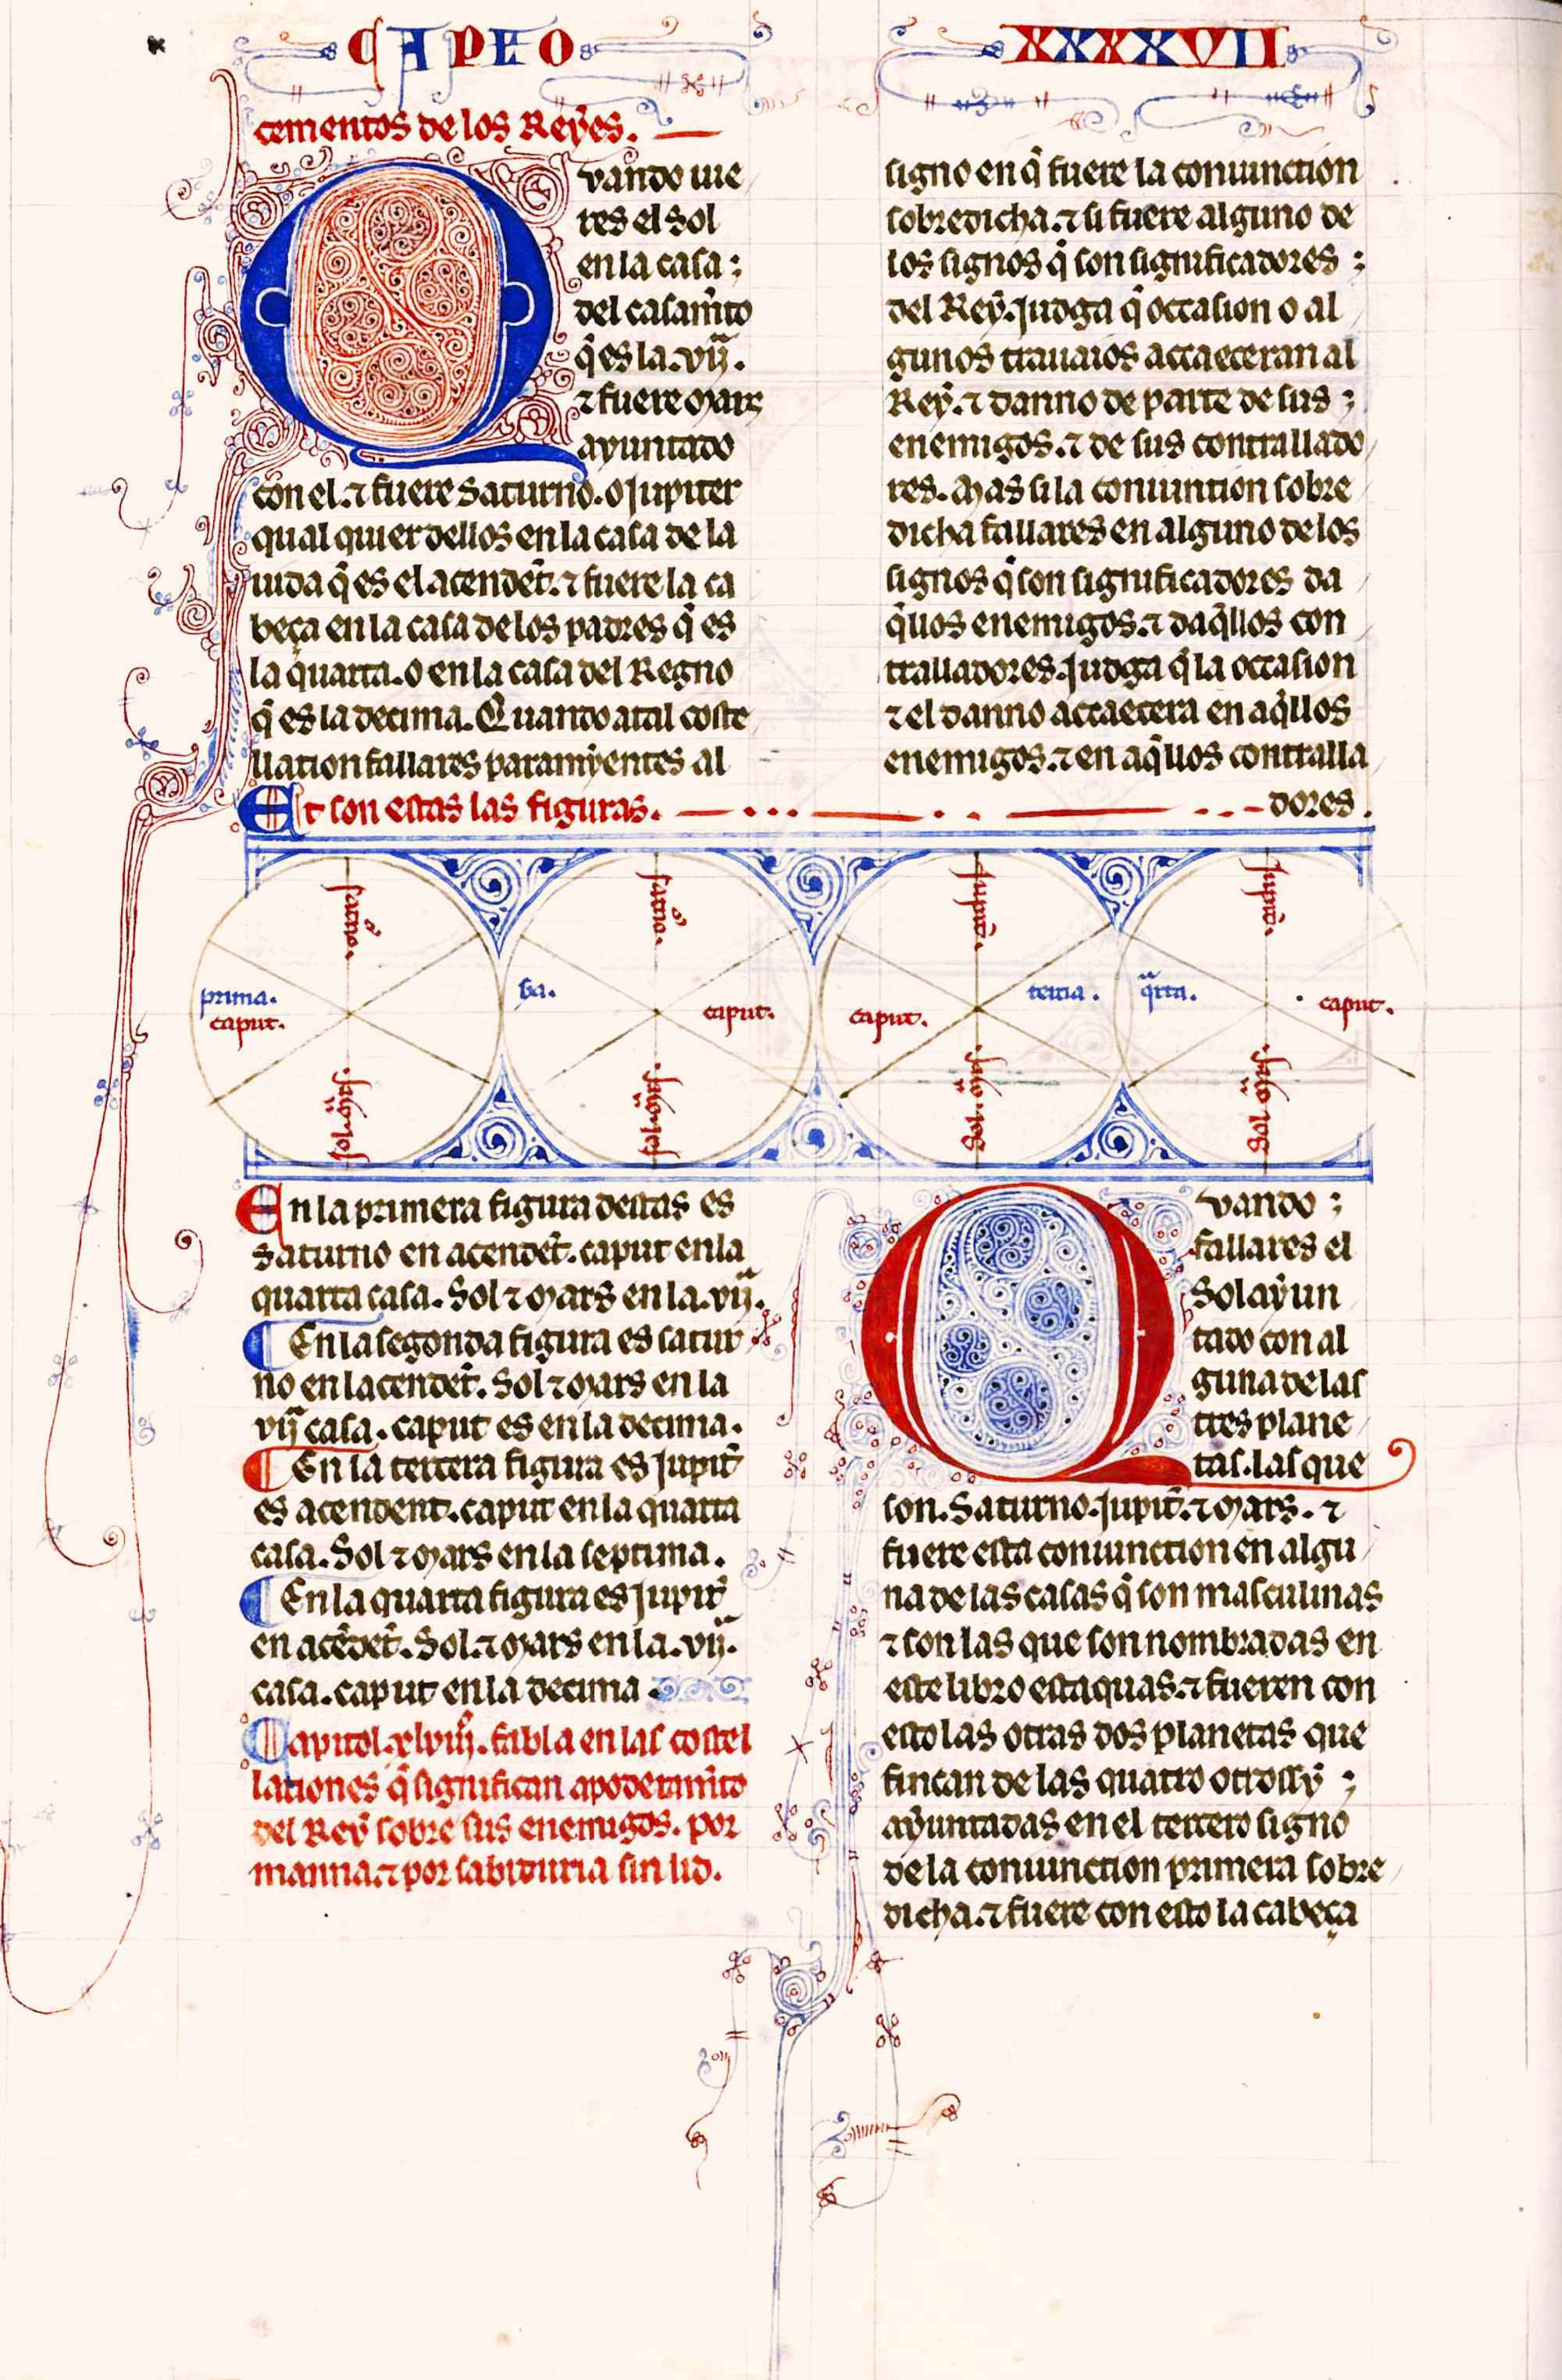 CAPLO XXXXVII
cemientos de los Reyes.
Quando uie
res el Sol
en la casa ;
del casamĩto
q̃ es la .vijª.
⁊ fuere Mars
ayuntado
con el. ⁊ fuere Saturno. o Jupiter
qual quier dellos en la casa de la
uida q̃ es el acendẽt. ⁊ fuere la ca
beça en la casa de los padres q̃ es
la quarta. o en la casa del Regno
q̃ es la decima. Quando atal coste
llation fallares paramyentes al
signo en q̃ fuere la coniunction
sobredicha. ⁊ si fuere alguno de
los signos q̃ son significadores ;
del Rey. Judga q̃ occasion o al
gunos trauaios accaeceran al
Rey. ⁊ danno de parte de sus ;
enemigos. ⁊ de sus contrallado
res. Mas si la coniuntion sobre
dicha fallares en alguno de los
signos q̃ son significadores da
q̃llos enemigos. ⁊ daq̃llos con
tralladores. Judga q̃ la occasion
⁊ el danno accaecera en aq̃llos
enemigos. ⁊ en aq̃llos contralla
dores.
Et son estas las figuras.
saturnꝰ.
prima.
caput.
sol. mars.
saturnꝰ.
scda.
caput.
sol. mars.
Jupit̃.
caput.
tercia.
Sol. mars.
Jupit̃.
q̃rta.
caput.
Sol mars.
En la primera figura destas es
Saturno en acendẽt. caput en la
quarta casa. Sol ⁊ Mars en la .vijª.
¶ En la segonda figura es satur
no en lacendẽt. Sol ⁊ Mars en la
vijª casa. caput es en la decima.
¶ En la tercera figura es Jupit̃
es acendent. caput en la quarta
casa. Sol ⁊ Mars en la septima.
¶ En la quarta figura es Jupit̃
en acẽdẽt. Sol. ⁊ Mars en la .vijª.
casa. caput en la decima.
Capitol .xlviijº. fabla en las costel
lationes q̃ significan apoderamĩto
del Rey sobre sus enemigos. por
manna. ⁊ por sabiduria sin lid.
Quando ;
fallares el
Sol ayun
tado con al
guna de las
tres plane
tas. las que
son. Saturno. Jupit̃. ⁊ Mars. ⁊
fuere esta coniunction en algu
na de las casas q̃ son masculinas
⁊ son las que son nombradas en
este libro estaquas. ⁊ fueren con
esto las otras dos planetas que
fincan de las quatro otrossy ;
ayuntadas en el tercero signo
de la coniunction primera sobre
dicha. ⁊ fuere con esto la cabeça